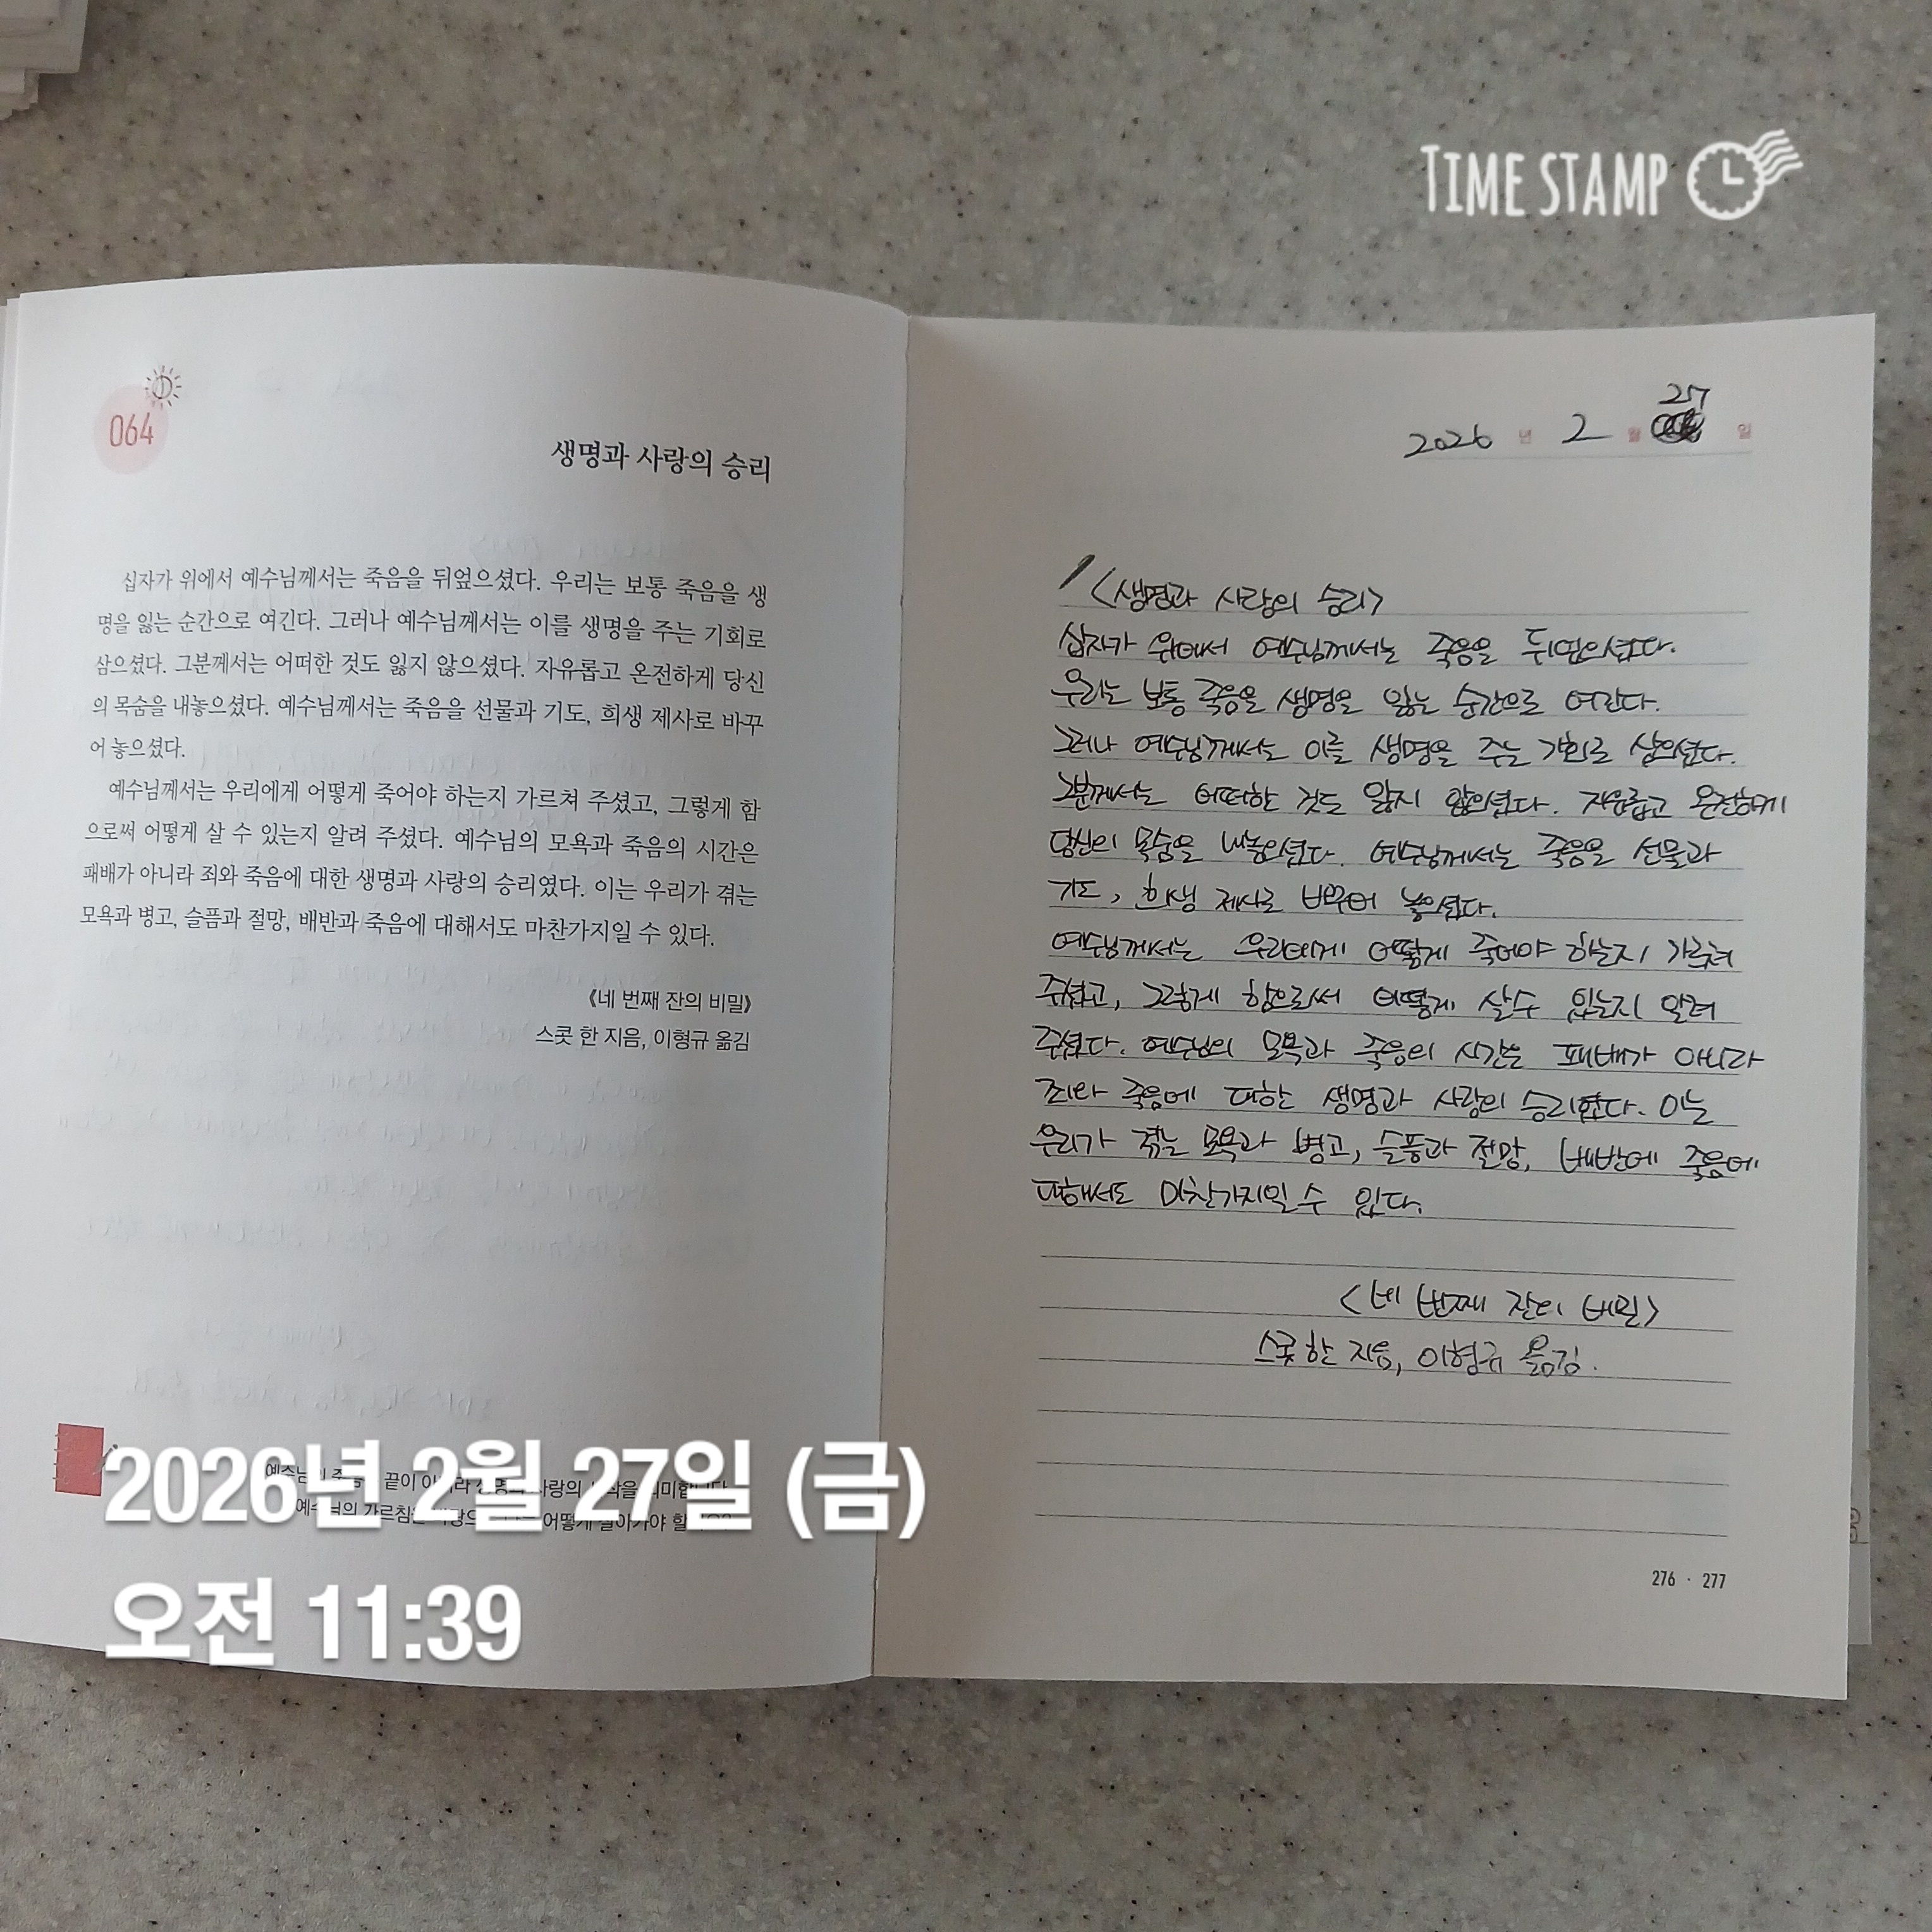 TIME STAMP
064
생명과 사랑의 승리
십자가 위에서 예수님께서는 죽음을 뒤엎으셨다. 우리는 보통 죽음을 생
명을 잃는 순간으로 여긴다. 그러나 예수님께서는 이를 생명을 주는 기회로
삼으셨다. 그분께서는 어떠한 것도 잃지 않으셨다. 자유롭고 온전하게 당신
의 목숨을 내놓으셨다. 예수님께서는 죽음을 선물과 기도, 희생 제사로 바꾸
어 놓으셨다.
예수님께서는 우리에게 어떻게 죽어야 하는지 가르쳐 주셨고, 그렇게 함
으로써 어떻게 살 수 있는지 알려 주셨다. 예수님의 모욕과 죽음의 시간은
패배가 아니라 죄와 죽음에 대한 생명과 사랑의 승리였다. 이는 우리가 겪는
모욕과 병고, 슬픔과 절망, 배반과 죽음에 대해서도 마찬가지일 수 있다.
《네 번째 잔의 비밀》
스콧 한 지음, 이형규 옮김
끝이
사랑의
예수님의 가르침을 어떻게 살아가야
2026년 2월 27일 (금)
오전 11:39
2026 년 2 월 27 일
<생명과 사랑의 승리>
십자가 위에서 예수님께서는 죽음을 뒤엎으셨다.
우리는 보통 죽음을 생명을 잃는 순간으로 여긴다.
그러나 예수님께서는 이를 생명을 주는 기회로 삼으셨다.
그분께서는 어떠한 것도 잃지 않으셨다. 자유롭고 온전하게
당신의 목숨을 내놓으셨다. 예수님께서는 죽음을 선물과
기도, 희생 제사로 바꾸어 놓으셨다.
예수님께서는 우리에게 어떻게 죽어야 하는지 가르쳐
주셨고, 그렇게 함으로써 어떻게 살수 있는지 알려
주셨다. 예수님의 모욕과 죽음의 시간은 패배가 아니라
죄와 죽음에 대한 생명과 사랑의 승리였다. 이는
우리가 겪는 모욕과 병고, 슬픔과 절망, 배반에 죽음에
대해서도 마찬가지일 수 있다.
<네 번째 잔의 비밀>
스콧 한 지음, 이형규 옮김.
276 · 277